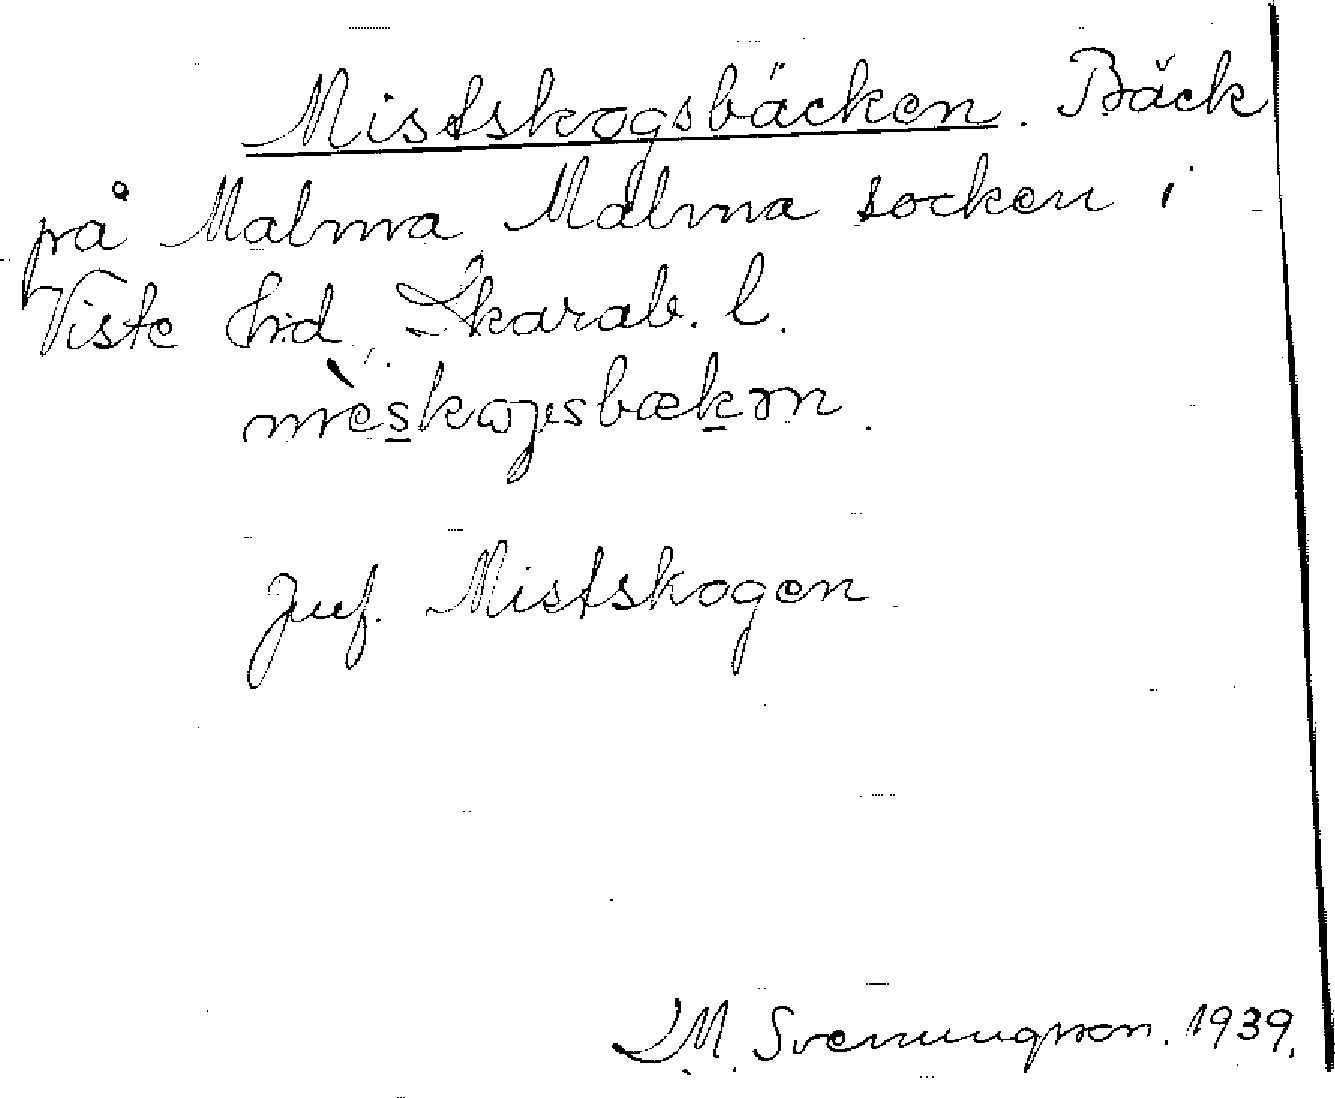 Mistskogsbäcken. Bäck
på Malma Malma socken i
Viste hd, Skarab. l.
mèskogsbækən.
Jmf. Mistskogen
M. Svenungsson. 1939.